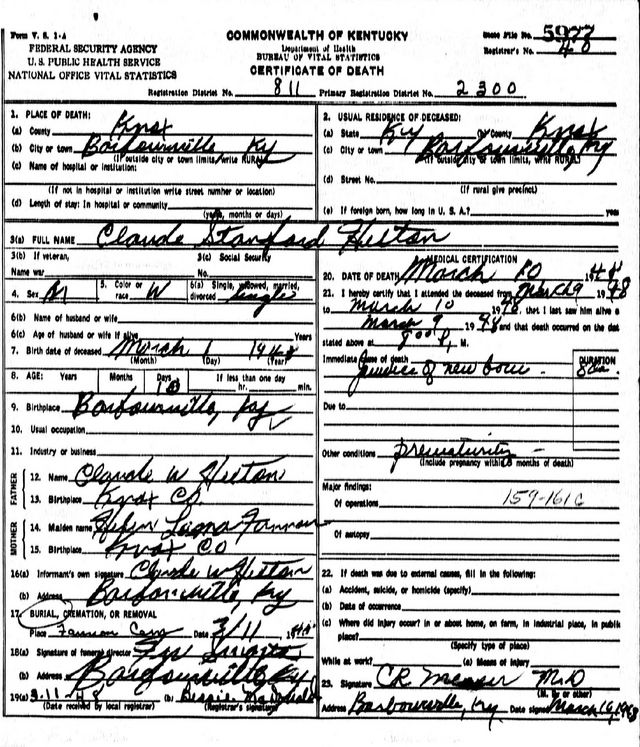 Form V. S. 1-A
FEDERAL SECURITY AGENCY
U. S. PUBLIC HEALTH SERVICE
NATIONAL OFFICE VITAL STATISTICS
COMMONWEALTH OF KENTUCKY
Department of Health
BUREAU OF VITAL STATISTICS
CERTIFICATE OF DEATH
State File No. 5977
Registrar's No. 40
Registration District No. 811 Primary Registration District No. 2300
1. PLACE OF DEATH:
(a) County Knox
(b) City or town Barbourville Ky
(If outside city or town limits, write RURAL)
(c) Name of hospital or institution:
(If not in hospital or institution write street number or location)
(d) Length of stay: In hospital or community
(years, months or days)
2. USUAL RESIDENCE OF DECEASED:
(a) State Ky (b) County Knox
(c) City or town Barbourville, Ky
(If outside city or town limits, write RURAL)
(d) Street No.
(If rural give precinct)
(e) If foreign born, how long in U. S. A.? years
3(a) FULL NAME Claude Stanford Helton
3(b) If veteran,
Name war
3(c) Social Security
No.
4. Sex M 5. Color or race W 6(a) Single, widowed, married, divorced Single
6(b) Name of husband or wife
6(c) Age of husband or wife if alive Years
7. Birth date of deceased March 1 1948
(Month) (Day) (Year)
8. AGE: Years Months Days 10 If less than one day hr. min.
9. Birthplace Barbourville, Ky
10. Usual occupation
11. Industry or business
FATHER
12. Name Claude W Helton
13. Birthplace Knox Co.
MOTHER
14. Maiden name
15. Birthplace Knox Co
16(a) Informant's own signature Claude W Helton
(b) Address Barbourville, Ky
17. BURIAL, CREMATION, OR REMOVAL
Place Date 3/11 1948
18(a) Signature of funeral director
(b) Address Barbourville Ky
19(a) 3-11-48 (b) Bessie
(Date received by local registrar) (Registrar's signature)
MEDICAL CERTIFICATION
20. DATE OF DEATH March 10 1948
21. I hereby certify that I attended the deceased from March 9 1948
to March 10 1948, that I last saw him alive o
March 9 1948 and that death occurred on the dat
stated above at 8:00 P. M.
Immediate cause of death
of new born
DURATION
Due to
Other conditions prematurity
(Include pregnancy within 3 months of death)
Major findings:
Of operations 159-161c
Of autopsy
22. If death was due to external causes, fill in the following:
(a) Accident, suicide, or homicide (specify)
(b) Date of occurrence
(c) Where did injury occur? in or about home, on farm, in industrial place, in public
place?
(Specify type of place)
While at work? (e) Means of injury
23. Signature M.D
(M. D. or other)
Address Barbourville, Ky Date signed March 16, 1948